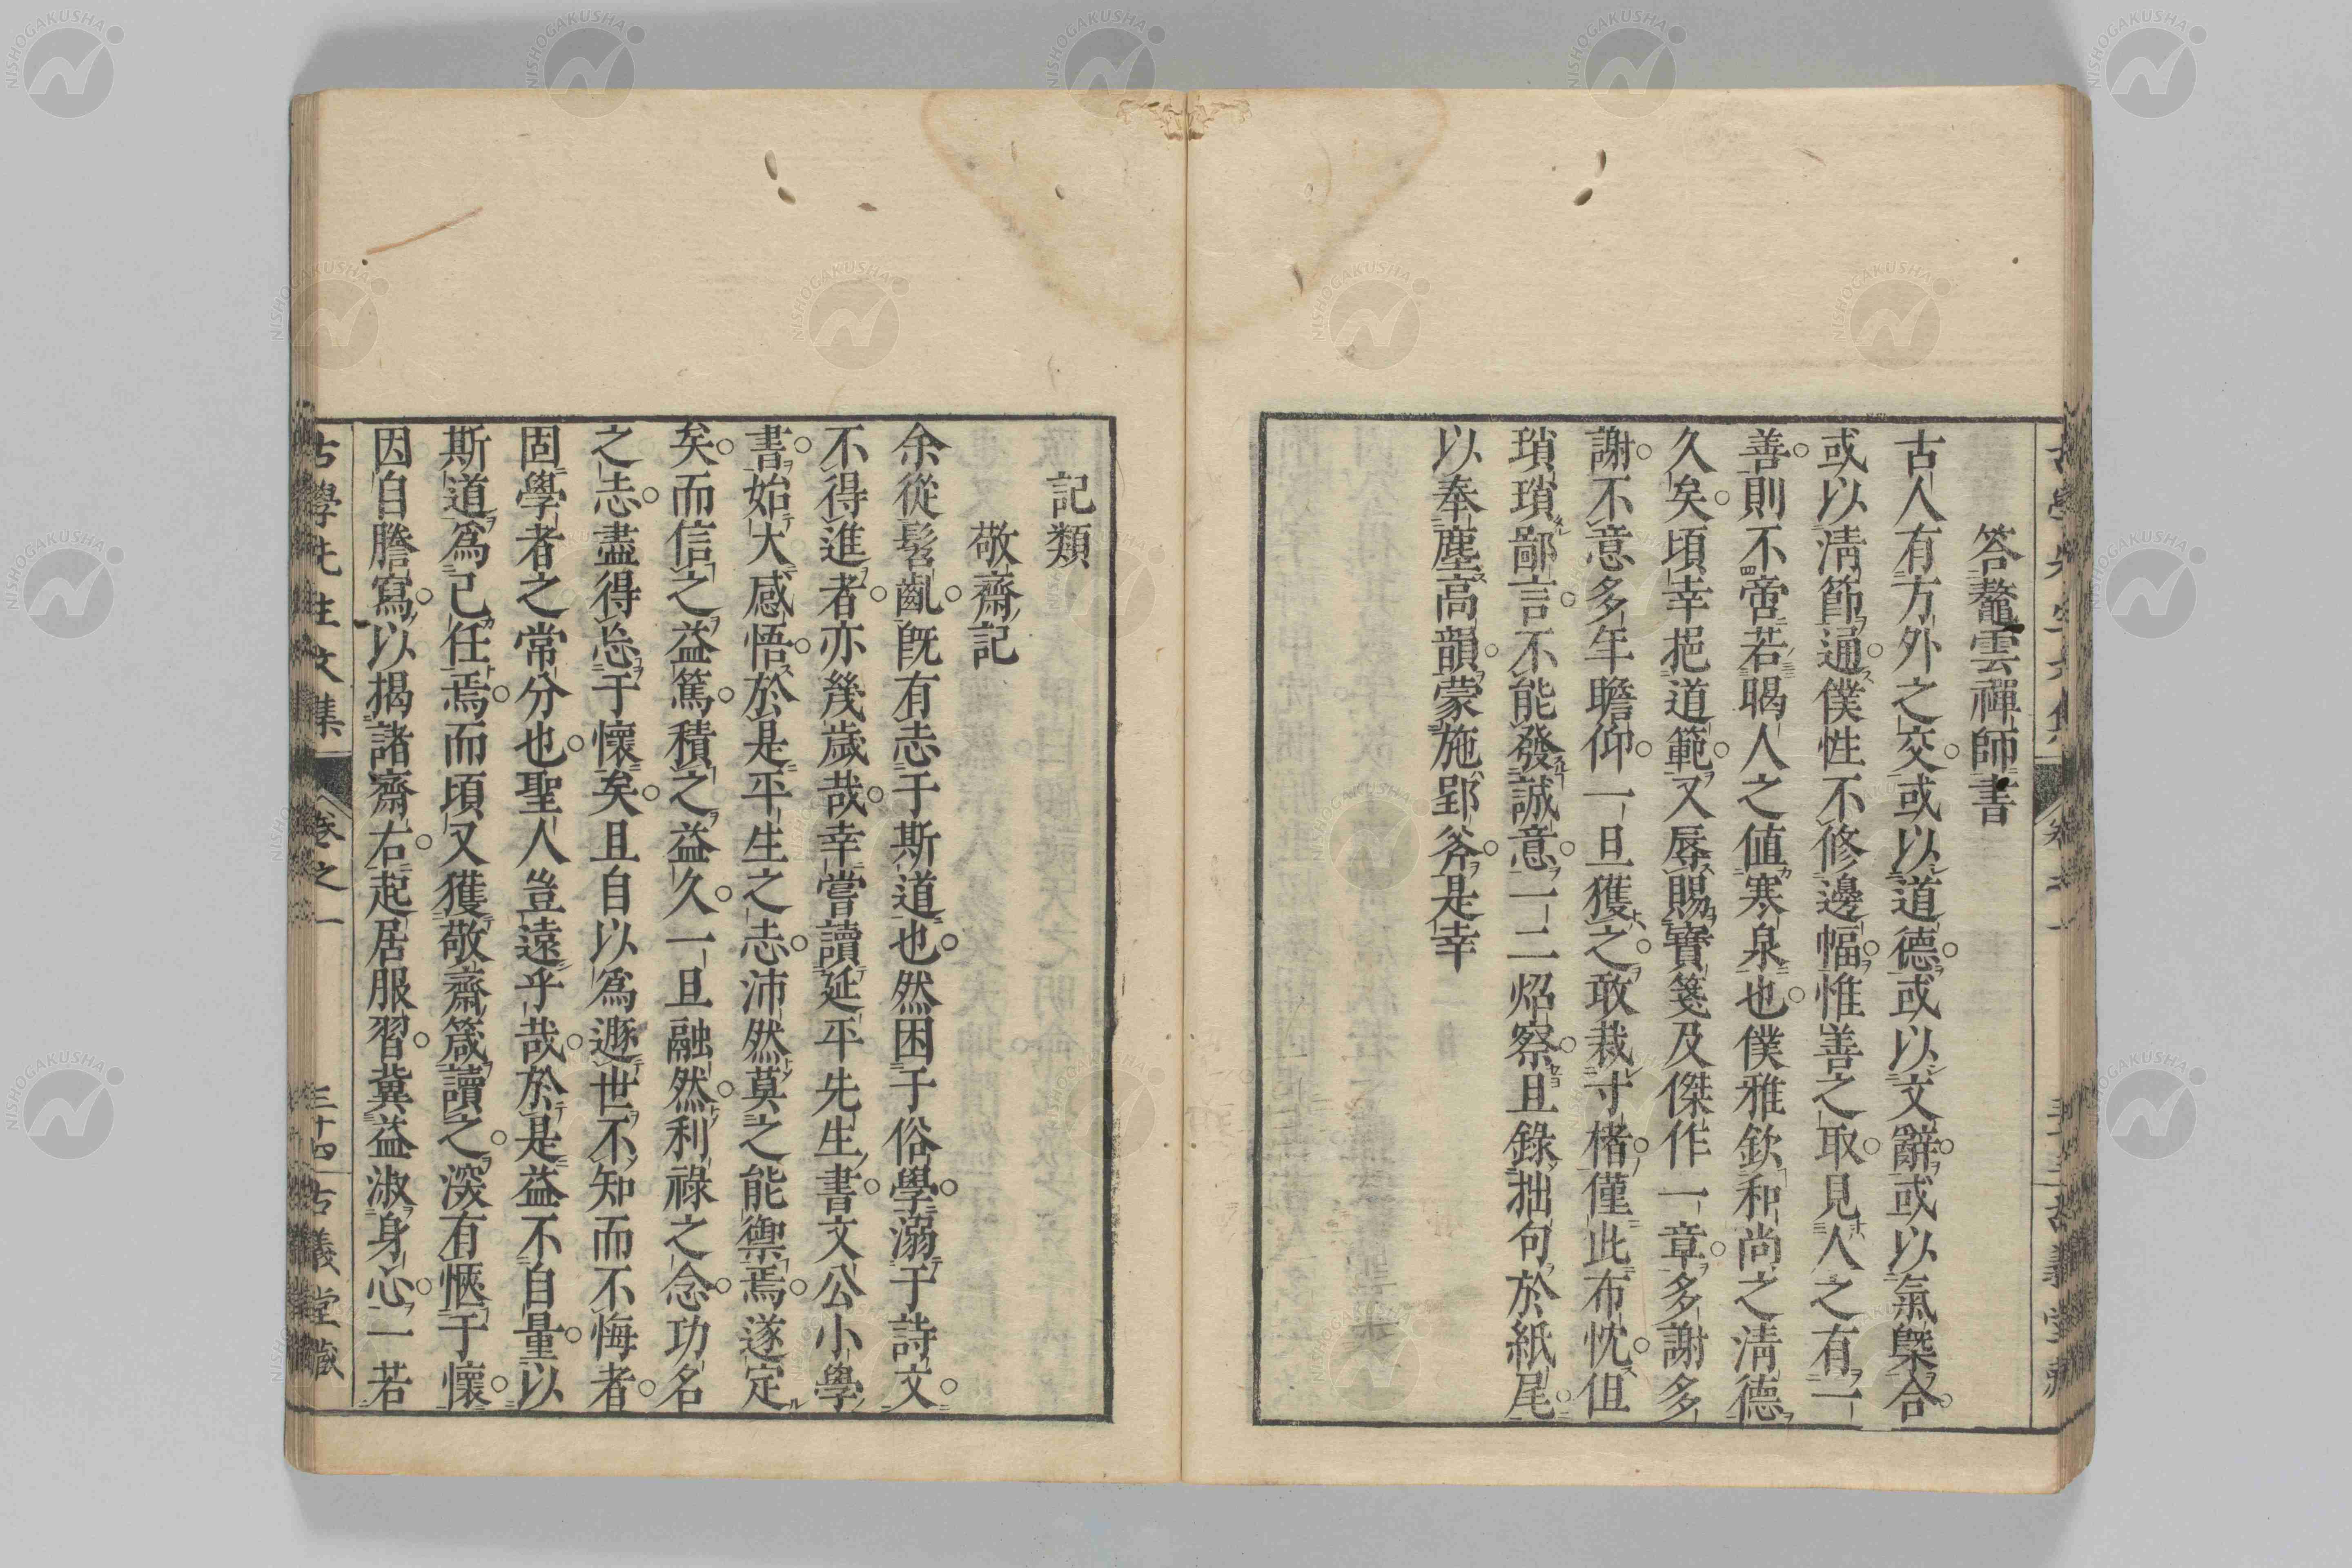 答鼇雲禪師書
古人有方外之交。或以道德。或以文辭。或以氣槩合。
或以淸節通。僕性不修邊幅。惟善之取。見人之有一
善。則不啻若暍人之値寒泉也。僕雅欽和尚之淸德
久矣。頃幸挹道範。又辱賜寶箋及傑作一章。多謝多
謝。不意多年瞻仰。一旦獲之。敢裁寸楮。僅此布忱。但
瑣瑣鄙言。不能發誠意。一二炤察。且錄拙句於紙尾。
以奉塵高韻。蒙施郢斧。是幸
記類
敬齋記
余從髫齓。旣有志于斯道也。然困于俗學。溺于詩文。
不得進者。亦幾歲哉。幸嘗讀延平先生書。文公小學
書。始大感悟。於是平生之志。沛然莫之能禦焉。遂定
矣。而信之益篤。積之益久。一旦融然。利祿之念。功名
之志。盡得忘于懷矣。且自以爲遯世不知而不悔者。
固學者之常分也。聖人豈遠乎哉。於是益不自量。以
斯道爲己任焉。而頃又獲敬齋箴讀之。深有愜于懷。
因自謄寫。以揭諸齋右。起居服習。冀益淑身心。一若
古學先生文集 卷之一 三十四 古義堂藏
NISHOGAKUSHA